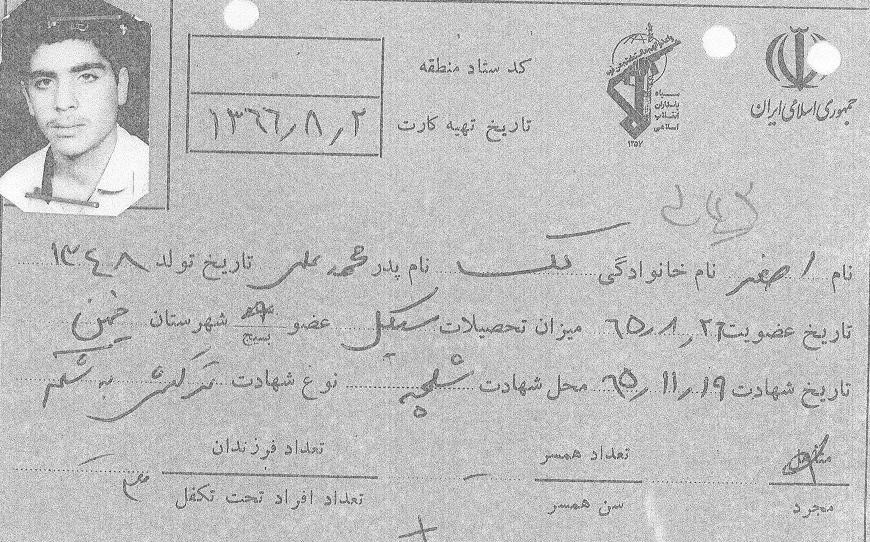 جمهوری اسلامی ایران
سپاه
پاسداران
انقلاب
اسلامی
۱۳۵۷
کد ستاد منطقه
تاریخ تهیه کارت ۱۳٦٦/۸/۲
نام اصغر نام خانوادگی نام پدر محمد علی تاریخ تولد ۱۳٤۸
تاریخ عضویت ٦٥/۸/۲٦ میزان تحصیلات سیکل عضو بسیج شهرستان خمین
تاریخ شهادت ٦٥/۱۱/۱۹ محل شهادت شلمچه نوع شهادت ترکش به شکم
متاهل تعداد همسر تعداد فرزندان
مجرد سن همسر تعداد افراد تحت تکفل